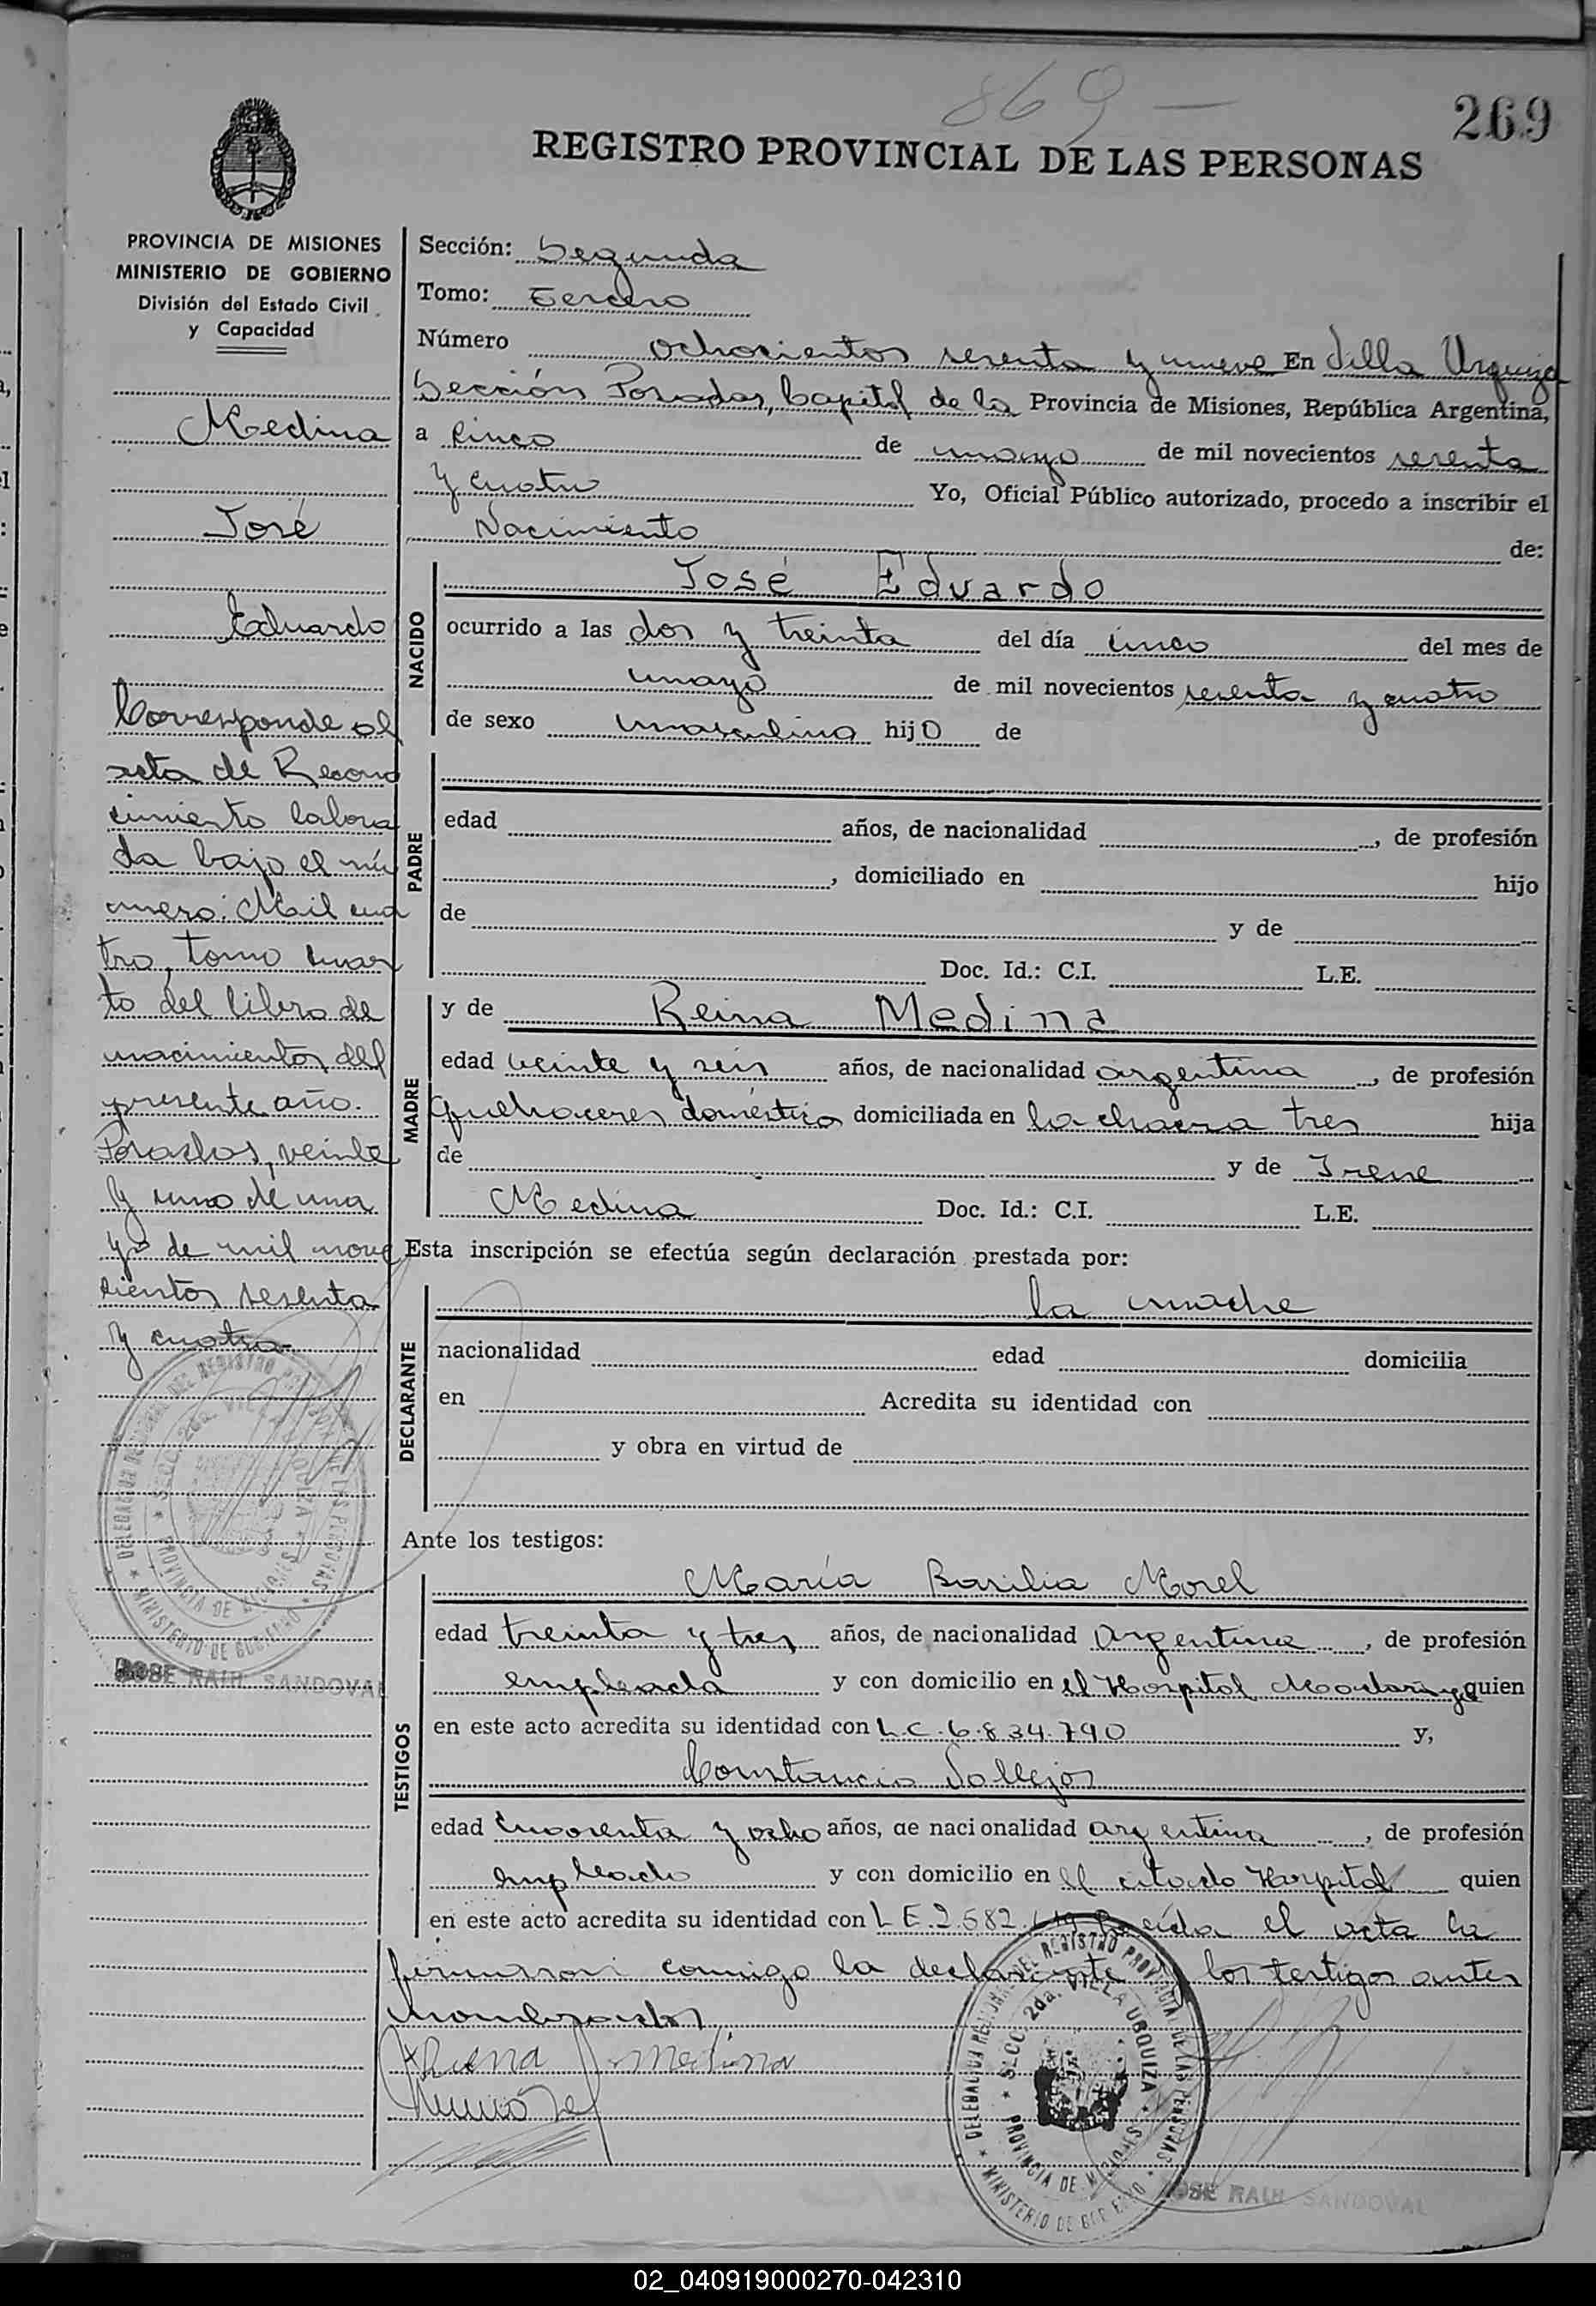 869 —
269
REGISTRO PROVINCIAL DE LAS PERSONAS
PROVINCIA DE MISIONES
MINISTERIO DE GOBIERNO
División del Estado Civil
y Capacidad
Medina
José
Eduardo
Corresponde al
acta de Recono
cimiento labra
da bajo el nú
mero: Mil cua
tro, tomo cuar
to del libro de
nacimientos del
presente año.
Posadas, veinte
y uno de ma
yo de mil nove
cientos sesenta
y cuatro
DELEGACION REGIONAL DEL REGISTRO PROVINCIAL DE LAS PERSONAS
SECC. 2da. VILLA URQUIZA
PROVINCIA DE MISIONES
MINISTERIO DE GOBIERNO
JOSE RAUL SANDOVAL
Sección: Segunda
Tomo: Tercero
Número ochocientos sesenta y nueve En Villa Urquiza
Sección Posadas, Capital de la Provincia de Misiones, República Argentina,
a cinco de mayo de mil novecientos sesenta
y cuatro Yo, Oficial Público autorizado, procedo a inscribir el
Nacimiento de:
NACIDO
José Eduardo
ocurrido a las dos y treinta del día cinco del mes de
mayo de mil novecientos sesenta y cuatro
de sexo masculino hijo de
PADRE
edad años, de nacionalidad , de profesión
, domiciliado en hijo
de y de
Doc. Id.: C.I. L.E.
MADRE
y de Reina Medina
edad veinte y seis años, de nacionalidad argentina , de profesión
quehaceres doméstico domiciliada en la chacra tres hija
de y de Irene
Medina Doc. Id.: C.I. L.E.
Esta inscripción se efectúa según declaración prestada por:
DECLARANTE
la madre
nacionalidad edad domicilia
en Acredita su identidad con
y obra en virtud de
Ante los testigos:
TESTIGOS
María Basilia Morel
edad treinta y tres años, de nacionalidad Argentina , de profesión
empleada y con domicilio en el Hospital Madariaga quien
en este acto acredita su identidad con L.C. 6.834.790 y,
Constancio Vallejos
edad cuarenta y ocho años, de nacionalidad argentina , de profesión
empleado y con domicilio en el citado Hospital quien
en este acto acredita su identidad con L E. 2.582. Leída el acta la
firmaron conmigo la declarante y los testigos antes
nombrados
Reina Medina
DELEGACION REGIONAL DEL REGISTRO PROVINCIAL DE LAS PERSONAS
SECC. 2da. VILLA URQUIZA
PROVINCIA DE MISIONES
MINISTERIO DE GOBIERNO
JOSE RAUL SANDOVAL
02_040919000270-042310